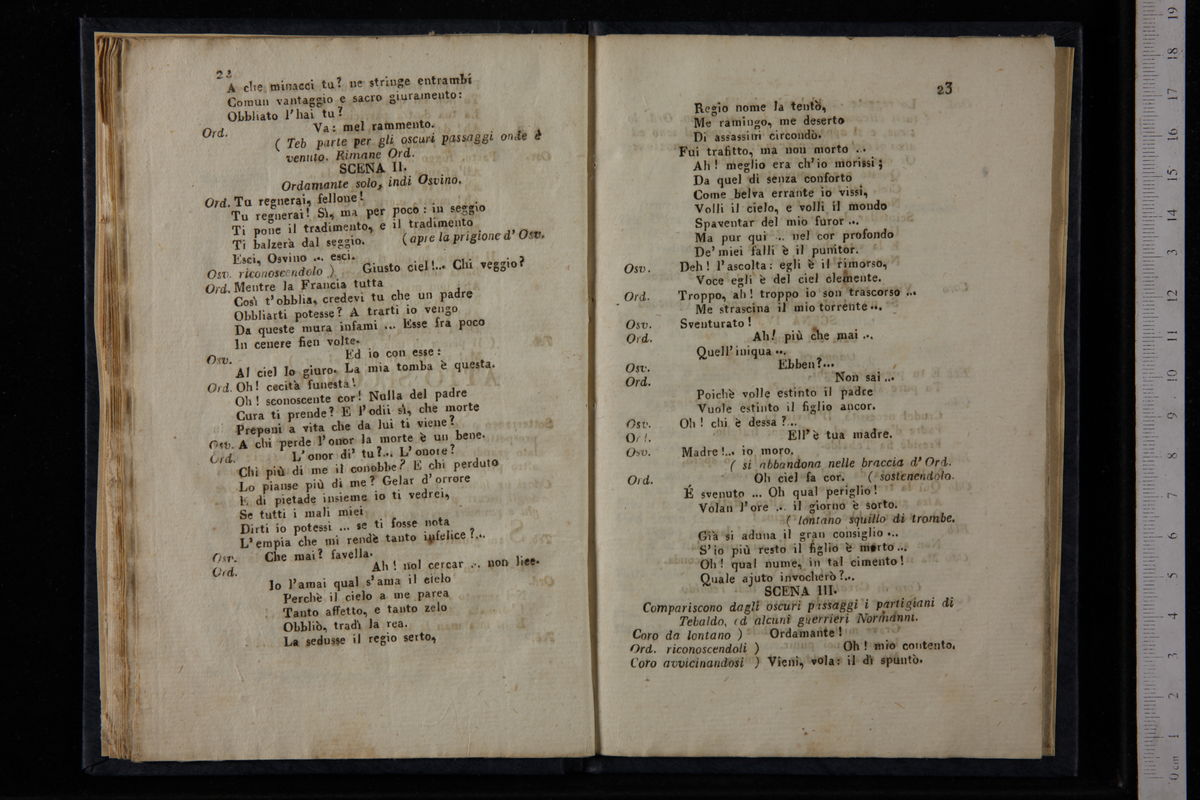 22
A che minacci tu? ne stringe entrambi
Comun vantaggio e sacro giuramento:
Obbliato l'hai tu?
Ord. Va: mel rammento.
( Teb parte per gli oscuri passaggi onde è
venuto. Rimane Ord.
SCENA II.
Ordamante solo, indi Osvino.
Ord. Tu regnerai, fellone!
Tu regnerai! Sì, ma per poco: in seggio
Ti pone il tradimento, e il tradimento
Ti balzerà dal seggio. (apre la prigione d' Osv.
Esci, Osvino ... esci.
Osv. riconoscendolo ) Giusto ciel!... Chi veggio?
Ord. Mentre la Francia tutta
Così t'obblia, credevi tu che un padre
Obbliarti potesse? A trarti io vengo
Da queste mura infami ... Esse fra poco
In cenere fien volte.
Osv. Ed io con esse:
Al ciel lo giuro. La mia tomba è questa.
Ord. Oh! cecità funesta!
Oh! sconoscente cor! Nulla del padre
Cura ti prende? E l'odii sì, che morte
Preponi a vita che da lui ti viene?
Osv. A chi perde l'onor la morte è un bene.
Ord. L'onor di' tu?... L'onore?
Chi più di me il conobbe? E chi perduto
Lo pianse più di me? Gelar d'orrore
E di pietade insieme io ti vedrei,
Se tutti i mali miei
Dirti io potessi ... se ti fosse nota
L'empia che mi rendè tanto infelice?...
Osv. Che mai? favella.
Ord. Ah! nol cercar ... non lice.
Io l'amai qual s'ama il cielo
Perchè il cielo a me parea
Tanto affetto, e tanto zelo
Obbliò, tradì la rea.
La sedusse il regio serto,
23
Regio nome la tentò,
Me ramingo, me deserto
Di assassini circondò.
Fui trafitto, ma non morto ..
Ah! meglio era ch'io morissi;
Da quel dì senza conforto
Come belva errante io vissi,
Volli il cielo, e volli il mondo
Spaventar del mio furor ...
Ma pur qui .. nel cor profondo
De' miei falli è il punitor.
Osv. Deh! l'ascolta: egli è il rimorso,
Voce egli è del ciel clemente.
Ord. Troppo, ah! troppo io son trascorso ...
Me strascina il mio torrente...
Osv. Sventurato!
Ord. Ah! più che mai ...
Quell'iniqua ...
Osv. Ebben?...
Ord. Non sai ...
Poichè volle estinto il padre
Vuole estinto il figlio ancor.
Osv. Oh! chi è dessa?...
Ord. Ell'è tua madre.
Osv. Madre!... io moro.
( si abbandona nelle braccia d' Ord.
Ord. Oh ciel fa cor. ( sostenendolo.
È svenuto ... Oh qual periglio!
Volan l'ore .. il giorno è sorto.
( lontano squillo di trombe.
Già si aduna il gran consiglio ...
S'io più resto il figlio è morto ...
Oh! qual nume, in tal cimento!
Quale ajuto invocherò?...
SCENA III.
Compariscono dagli oscuri passaggi i partigiani di
Tebaldo, ed alcuni guerrieri Normanni.
Coro da lontano ) Ordamante!
Ord. riconoscendoli ) Oh! mio contento.
Coro avvicinandosi ) Vieni, vola: il dì spuntò.
0 cm 1 2 3 4 5 6 7 8 9 10 11 12 13 14 15 16 17 18 19